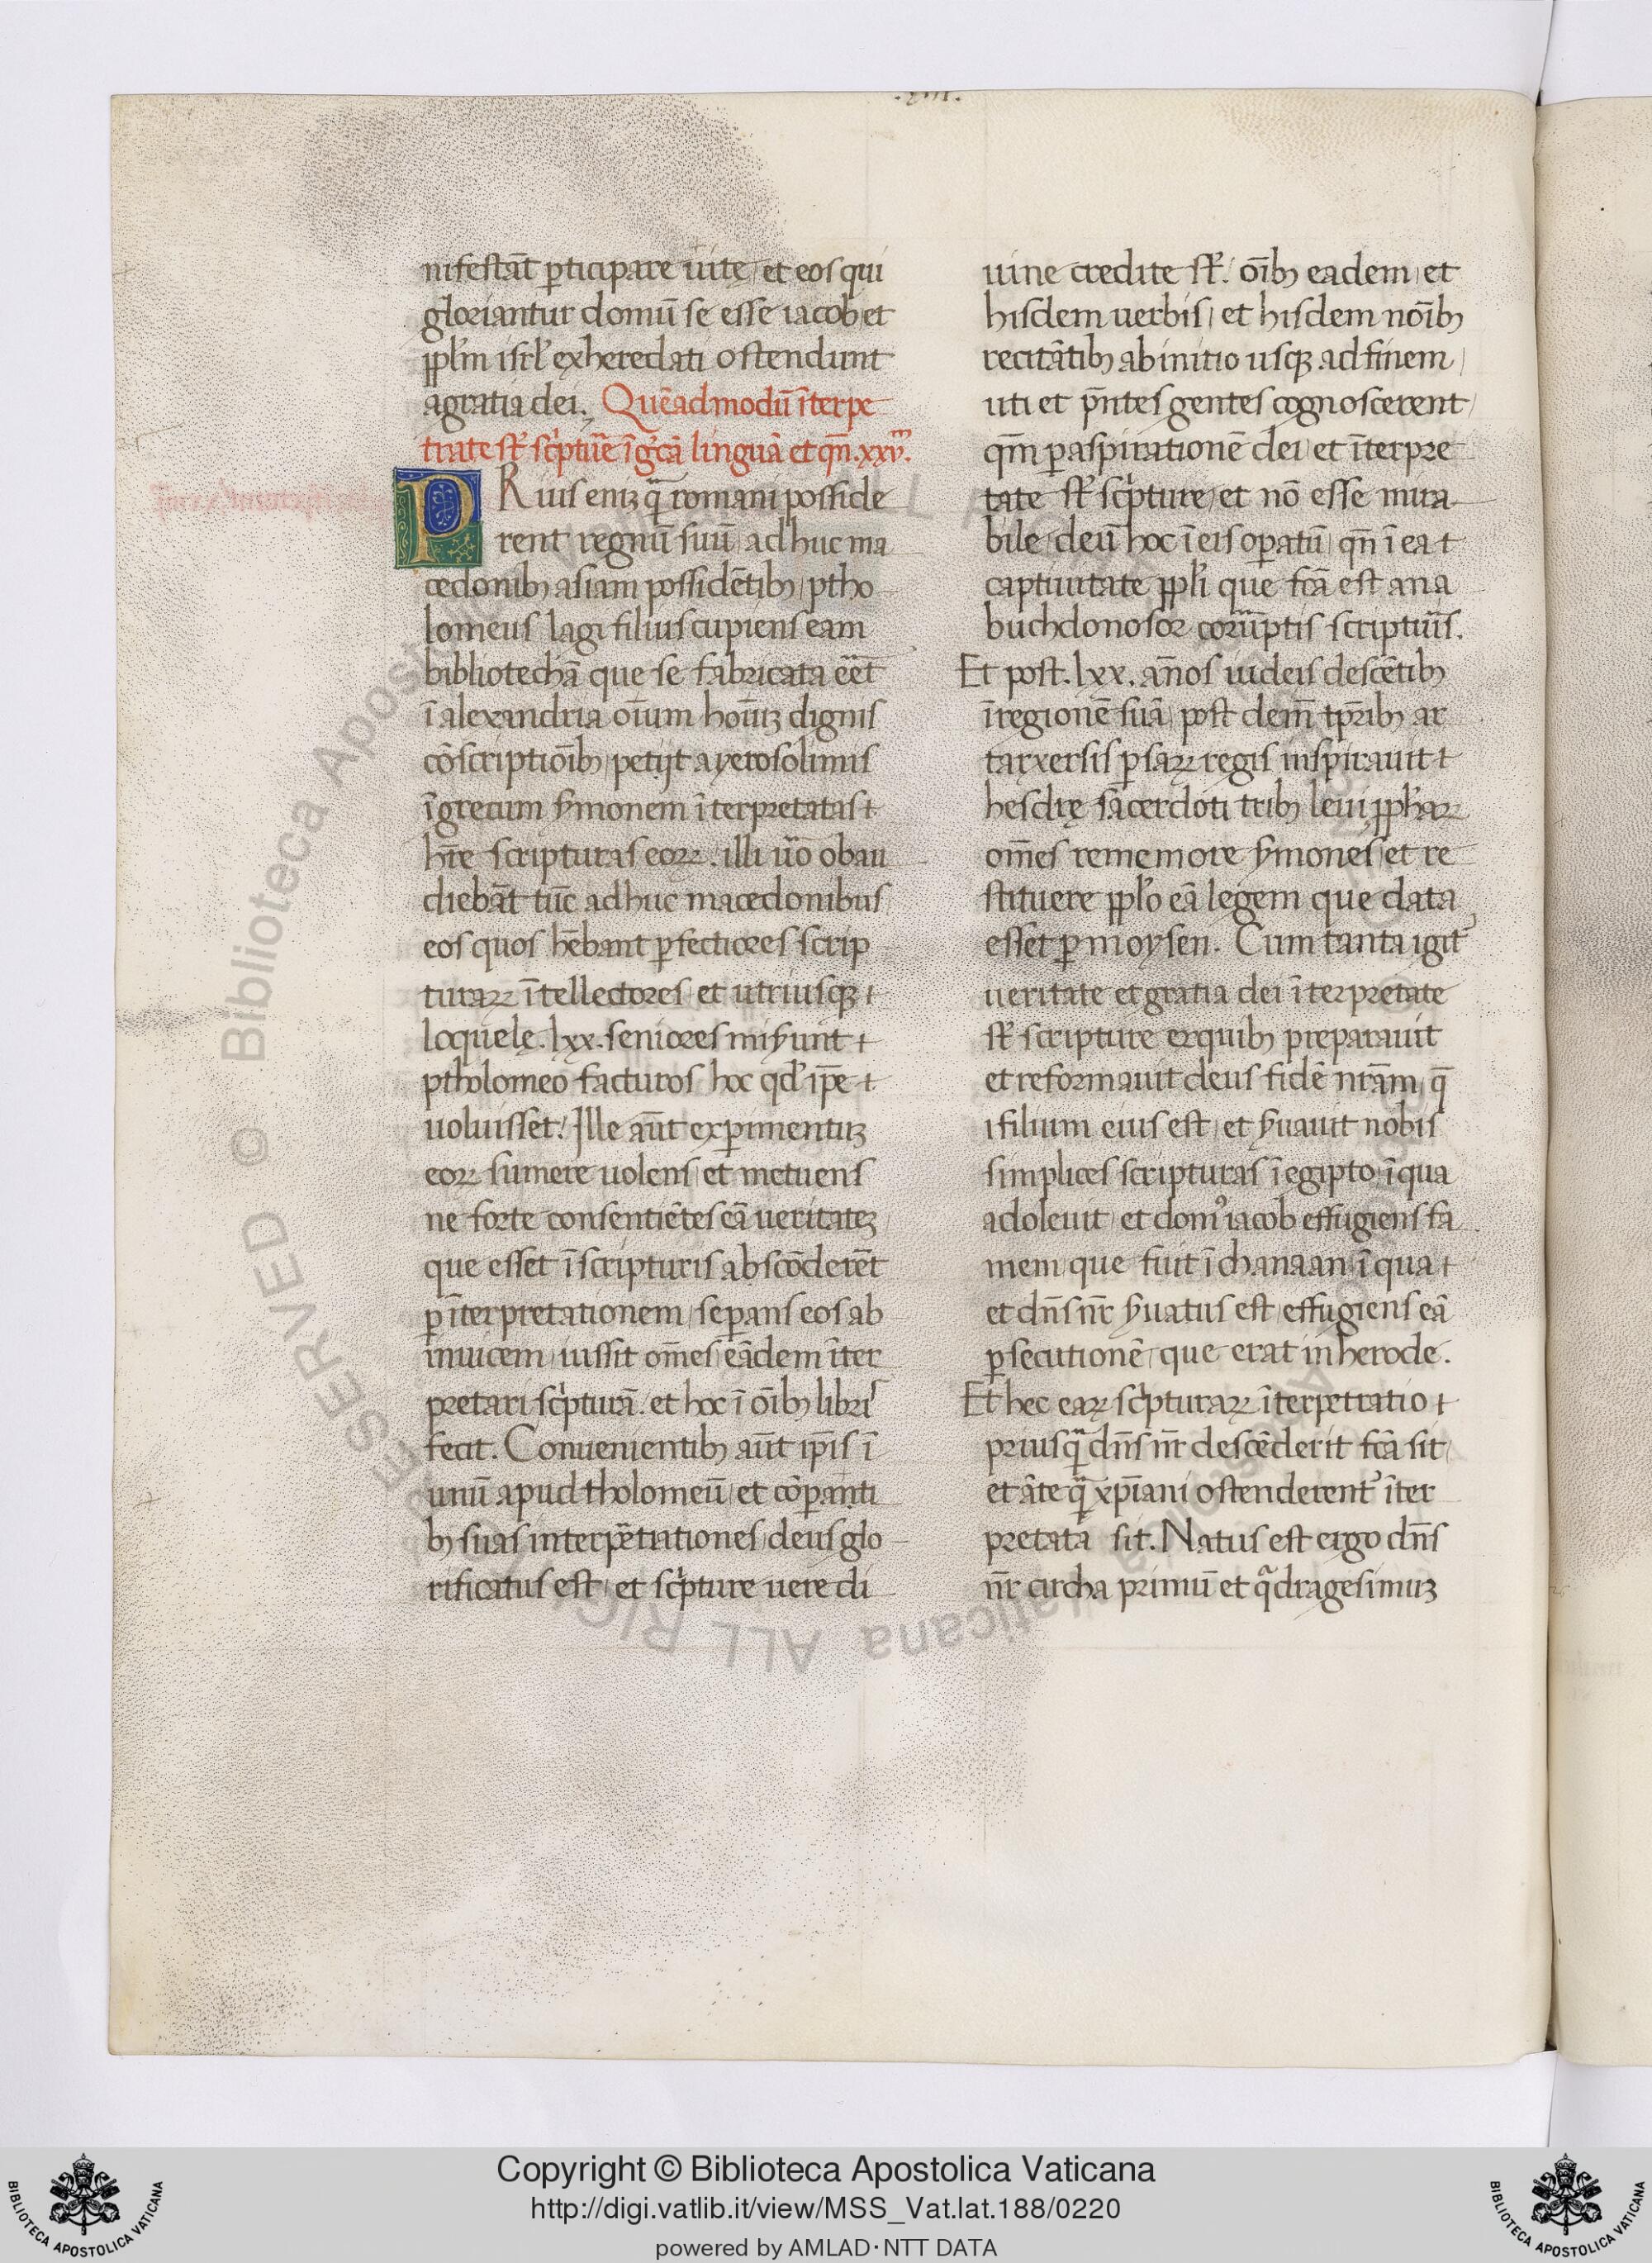 .xiii.
nifestāt ꝑticipare uitę / et eos qui
gloriantur domū se esse iacob et
pp̄lm isrl̓ exheredati ostendunt
a gratia dei. Quēadmodū īterpe
trate st̄ sc̓ptur̄e ī gc̓ā linguā et qn̄. xxv.
PRius eniꝫ qᷓ romani posside
rent regnū suū / adhuc ma
cedonibꝫ asiam possidētibꝫ / ptho
lomeus lagi filius cupiens eam
bibliotechā que se fabricata eēt
ī alexandria oīum hoīuꝫ dignis
cōscriptiōibꝫ / petijt a yerosolimis
ī grecum ẜmonem īterpretatas
hr̄e scripturas eoꝝ. illi uo̓ obau
diebāt tūc adhuc macedonibus
eos quos hēbant ꝑfectiores scrip
turaꝝ ītellectores / et utriusqꝫ
loquelę .lxx. seniores miẜunt
ptholomeo facturos hoc qd̓ ip̄e
uoluisset. Ille aūt experimentuꝫ
eoꝝ sumere uolens / et metuens
ne forte consentiētes eā ueritateꝫ
que esset ī scripturis abscōderēt
ꝑ īterpretationem / seꝑans eos ab
inuicem / iussit om̄es eādem īter
pretari sc̓pturā. et hoc ī oībꝫ libris
fecit. Conuenientibꝫ aūt ip̄is ī
unū apud tholomeū / et cōꝑanti
bꝫ suas interp̄etrationes / deus glo
rificatus est / et sc̓pture uere di
uine credite st̄. oībꝫ eadem / et
hisdem uerbis / et hisdem noībꝫ
recitātibꝫ ab initio usqꝫ ad finem /
uti et p̄ntes gentes cognoscerent /
qm̄ ꝑ aspirationē dei / et īterpre
tate st̄ sc̓pture / et nō esse mira
bile / deū hoc ī eis oꝑatū / qn̄ ī ea
captiuitate pp̄li que fc̄a est a na
buchdonosor coruptis scriptur̄is.
Et post .lxx. an̄os iudeis descētibꝫ
ī regionē suā / post dem̄ tp̄ribꝫ ar
tarxersis ꝑsaꝝ regis inspirauit
hesdrę sacerdoti tribꝫ leui pp̄haꝝ
om̄es rememore ẜmones / et re
stituere pp̄lo eā legem que data
esset ꝑ moysen. Cum tanta igit̓
ueritate et gratia dei īterpretate
st̄ scripture ex quibꝫ preparauit
et reformauit deus fidē nr̄am / q̄
i filium eius est / et ẜuauit nobis
simplices scripturas ī egipto / ī qua
adoleuit / et dom⁹ iacob effugiens fa
mem / que fuit ī chanaan / ī qua
et dn̄s nr̄ ẜuatus est / effugiens eā
ꝑsecutionē / que erat in herode.
Et hec eaꝝ sc̓pturaꝝ īterpetratio
priusqᷓ dn̄s nr̄ descēderit fc̄a sit /
et āteqᷓ xp̄iani ostenderent̓ īter
pretata sit. Natus est ergo dn̄s
nr̄ circha primū et qᷓdragesimuꝫ
© Biblioteca Apostolica Vaticana ALL RIGHTS RESERVED
Copyright © Biblioteca Apostolica Vaticana
http://digi.vatlib.it/view/MSS_Vat.lat.188/0220
powered by AMLAD·NTT DATA
BIBLIOTECA APOSTOLICA VATICANA
BIBLIOTECA APOSTOLICA VATICANA